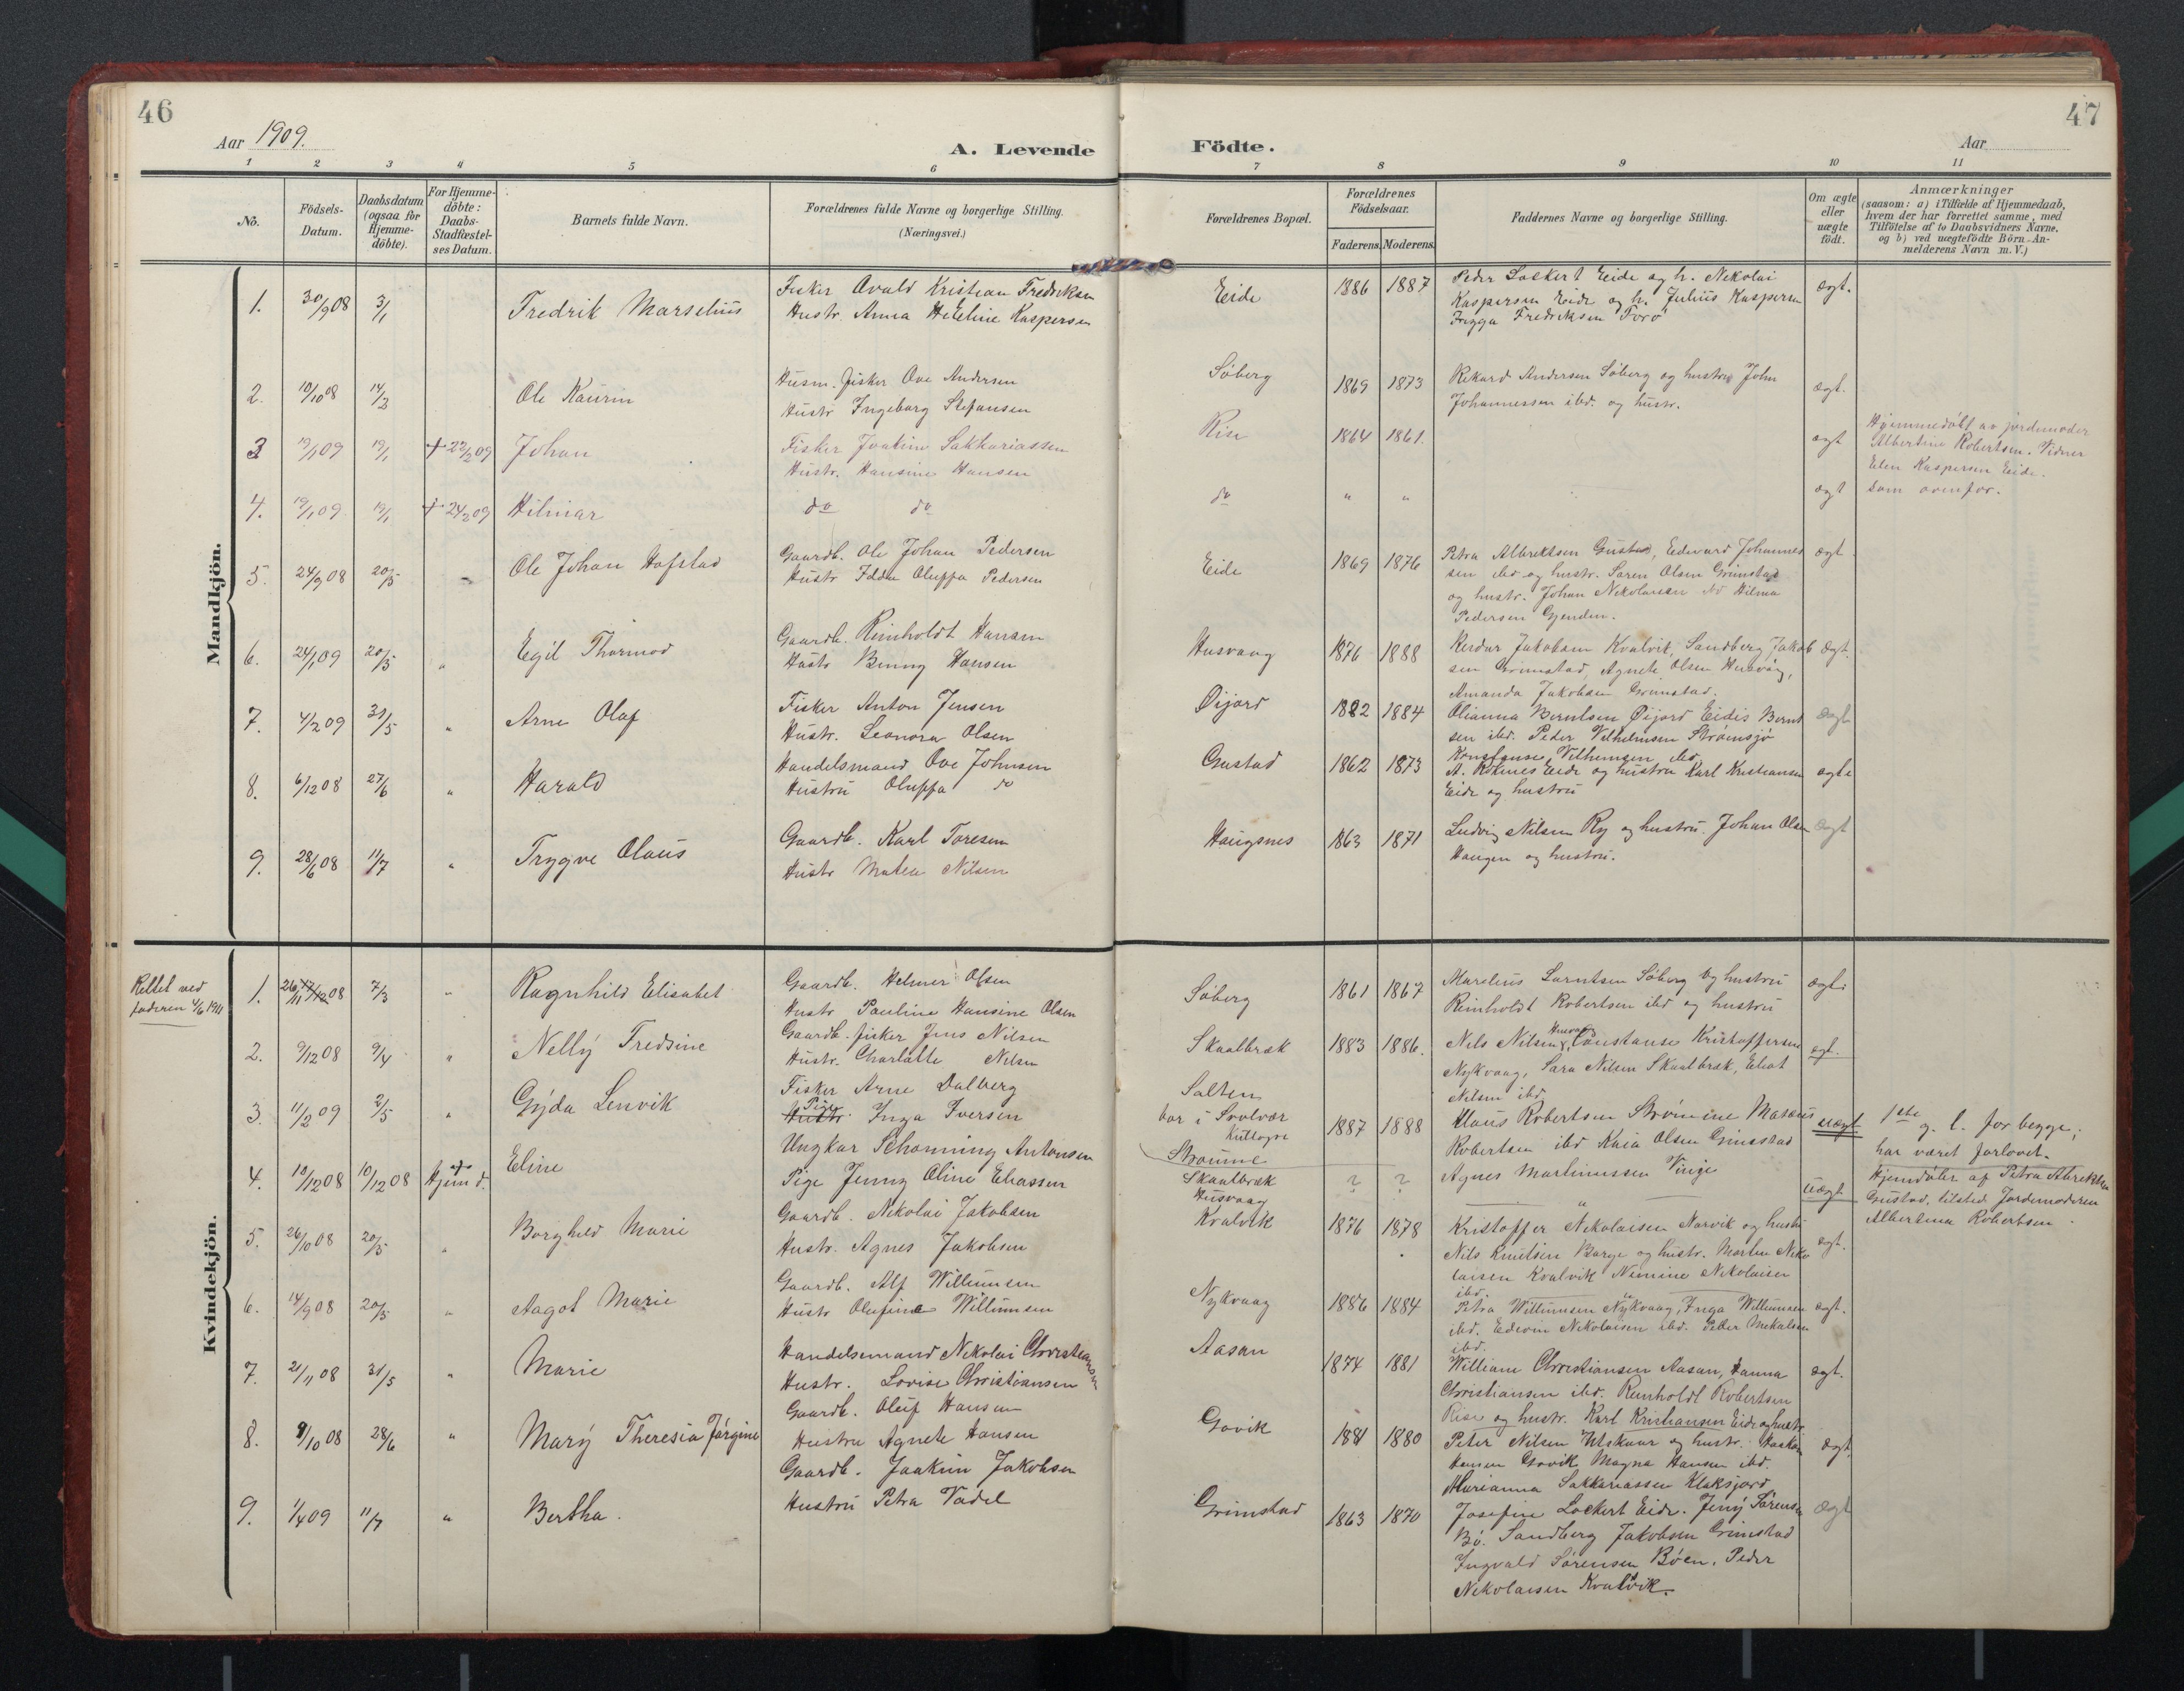 46
47
Aar 1909.
A. Levende Födte.
Aar
1 2 3 4 5 6 7 8 9 10 11
No.
Födsels-Datum.
Daabsdatum (ogsaa for Hjemme-döbte).
For Hjemme-döbte: Daabs-Stadfæstel-ses Datum.
Barnets fulde Navn.
Forældrenes fulde Navne og borgerlige Stilling.
(Næringsvei.)
Forældrenes Bopæl.
Forældrenes Födselsaar.
Faderens. Moderens.
Faddernes Navne og borgerlige Stilling.
Om ægte eller uægte födt.
Anmærkninger
(saasom: a) i Tilfælde af Hjemmedaab, hvem der har forrettet samme, med Tilföielse af to Daabsvidners Navne, og b) ved uægtefödte Börn An-melderens Navn m.V.)
Mandkjön.
1. 30/9 08 3/1 Fredrik Marselius
Fisker Kristian Fredriksen
Hustr. Anna Kaspersen
Eide 1886 1887
Peder Lockert Eide og h. Nikolai
Kaspersen Eide og h. Julius Kaspersen
Fredriksen
ægt.
2. 10/10 08 14/3 Ole Kaurin
Husm. fisker Ove Andersen
Hustr Ingeborg Stefansen
Söberg 1869 1873
Rikard Andersen Söberg og hustru John
Johannessen ibd. og hustr.
ægt.
3 19/1 09 19/1 + 22/2 09 Johan
Fisker Joakim Sakkariassen
Hustr. Hansine Hansen
Rise 1864 1861.
ægt
Hjemmedöbt av jordemoder
Albertine Robertsen. Vidner
Elen Kaspersen Eide.
4. 19/1 09 19/1 + 24/2 09 Hilmar
do do
do " "
ægt som ovenfor.
5. 24/9 08 20/5 Ole Johan Hofstad
Gaardb. Ole Johan Pedersen
Hustr Oluffa Pedersen
Eide 1869 1876
Petra Albrektsen Gustad, Edvard Johannes
sen ibd og hustr. Søren Olsen Grimstad
og hustr. Johan Nikolaisen ibd Hilma
Pedersen
ægt
6. 24/1 09 20/5 " Egil Thormod
Gaardb. Reinholdt Hansen
Hustr Benny Hansen
Husvaag 1876 1888
Jakobsen Kvalvik, Sandberg Jakob
sen Grimstad, Agnete Olsen Husvåg,
Amanda Jakobsen Grimstad.
ægt.
7. 4/2 09 31/5 " Arne Olaf
Fisker Anton Jensen
Hustr. Leonora Olsen
Øijord 1882 1884
Olianna Berntsen Øijord Eidis Bernt
sen ibd. Peder Vilhelmsen Strømsjö
Konstanse Vilhemsen ibd
ægt
8. 6/12 08 27/6 " Harald
Handelsmand Ove Johnsen
Hustru Oluffa do
Gustad 1862 1873
A. Eide og hustru Karl Kristiansen
Eide og hustru
ægte
9. 28/6 08 11/7 " Trygve Olaus
Gaardb. Karl Toresen
Hustr Matea Nilsen
Haugsnes 1863 1871
Ludvig Nilsen Ry og hustru. Johan Olsen
Haugen og hustru.
ægt
Kvindekjön.
Rettet ved
faderen 4/6 1911
1. 26/11 08 7/3 " Ragnhild Elisabet
Gaardb. Helmer Olsen
Hustr Pauline Hansine Olsen
Söberg 1861 1867
Marelius Larntsen Söberg og hustru
Reinholdt Robertsen ibd og hustru
ægt.
2. 9/12 08 9/4 " Nelly Fredsine
Gaardb. fisker Jens Nilsen
Hustr. Charlotte Nilsen
Skaalbræk 1883 1886.
Nils Nilsen Husvaag, Constanse Kristoffersen
Nykvaag, Sara Nilsen Skaalbræk, Eliot
Nilsen ibd.
ægt.
3. 11/2 09 2/5 " Gyda Lenvik
Fisker Arne Dalberg
Hustr. Pige Inga Iversen
Salten
bor i Svolvær
Strømme
1887 1888
Klaus Robertsen Strømme Matæus
Robertsen ibd Kaia Olsen Grimstad
Agnes Martinussen Vinje
uægt
1ste g. l. for begge;
har været forlovet.
4. 10/12 08 10/12 08 Hjem d. Eline
Ungkar Schonning Antonsen
Pige Jenny Oline Eliassen
Skaalbræk
Husvaag
? ?
"
uægt
Hjemdöbt af Petra Abrektsen
Gustad, tilsted Jordemoderen
Albertina Robertsen.
5. 26/10 08 20/5 " Borghild Marie
Gaardb. Nikolai Jakobsen
Hustr. Agnes Jakobsen
Kvalvik 1876 1878
Kristoffer Nikolaisen Narvik og hustr
Nils Knutsen Barge og hustr. Morten Niko
laisen Kvalvik Nikolaisen
ibd.
ægt.
6. 14/9 08 20/5 " Aagot Marie
Gaardb. Alf Willumsen
Hustr Olufine Willumsen
Nykvaag 1886 1884
Petra Willumsen Nykvaag, Inga Willumsen
ibd. Edevin Nikolaisen ibd. Petter Mekalsen
ibd.
ægt.
7. 21/11 08 31/5 " Marie
Handelsmand Nikolai Christiansen
Hustr. Lovise Christiansen
Aasan 1874 1881
William Christiansen Aasan, Hanna
Christiansen ibd. Reinholdt Robertsen
Rise og hustr. Karl Kristiansen Eide og hustr
ægt.
8. 9/10 08 28/6 " Mary Theresia Jörgine
Gaardb. Oluf Hansen
Hustru Agnete Hansen
Govik 1881 1880
Peter Nilsen Utskaar og hustr. Haakon
Hansen Govik Magna Hansen ibd.
Marianna Sakkariassen Klaksjord
ægt.
9. 1/4 09 11/7 " Bertha.
Gaardb. Joakim Jakobsen
Hustru Petra Vadel
Grimstad 1863 1870
Josefine Lockert Eide. Jeny Sörensen
Bö. Sandberg Jakobsen Grimstad
Ingvald Sörensen Böen. Peder
Nikolaisen Kvalvik.
ægt